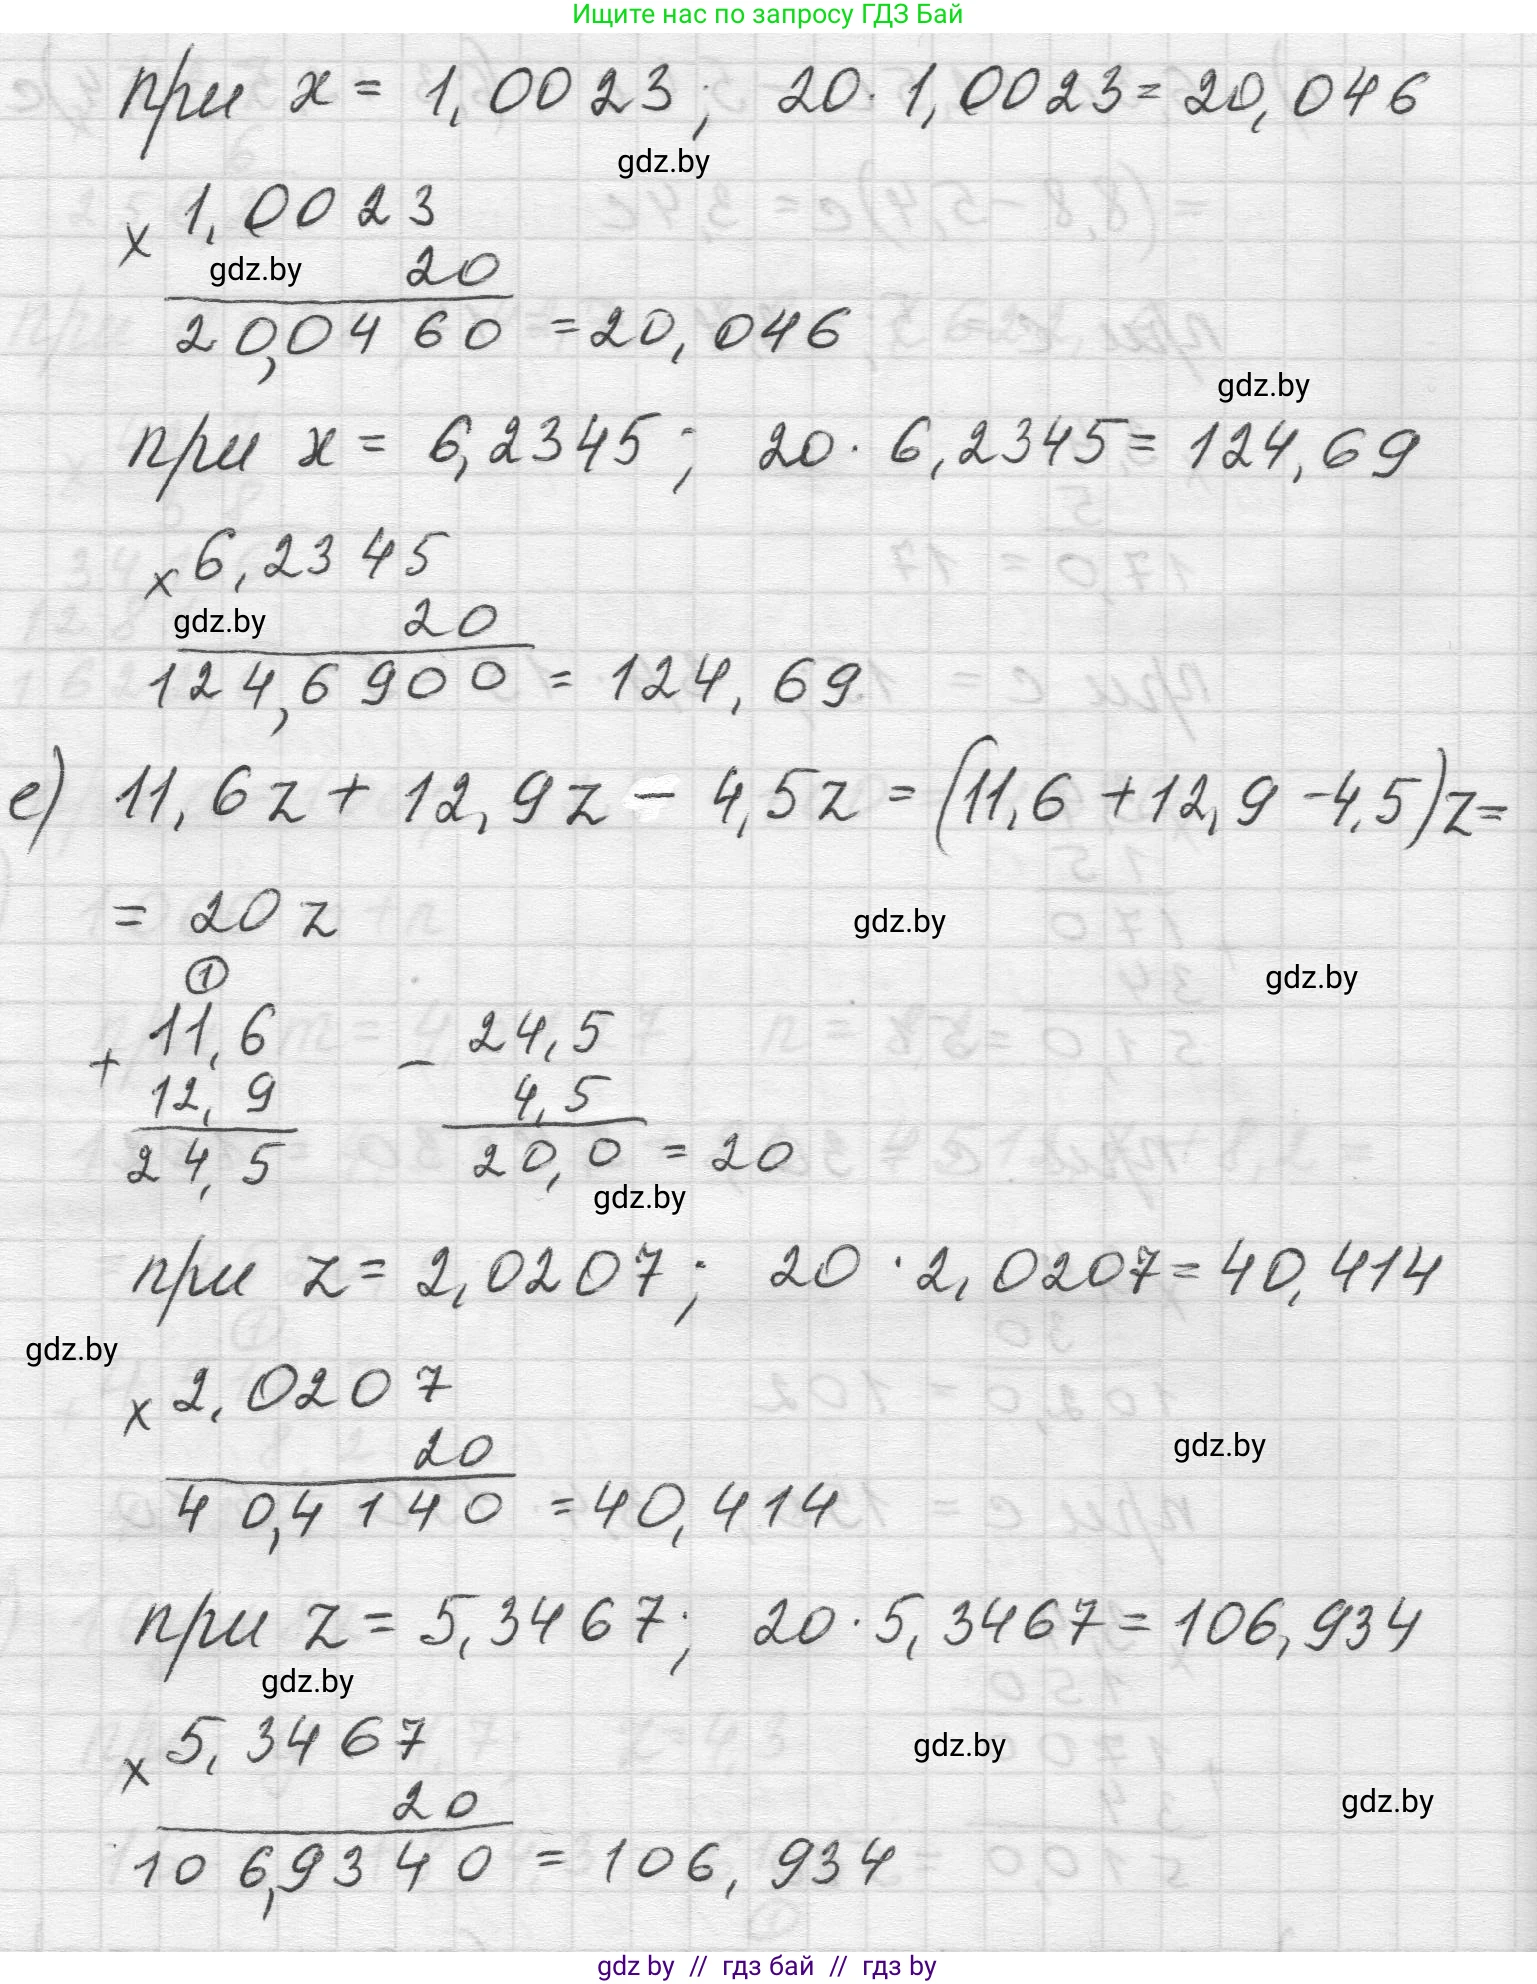 Ищите нас по запросу ГДЗ Бай
при x = 1,0023; 20 · 1,0023 = 20,046
gdz.by
× 1,0023
gdz.by 20
20,0460 = 20,046
gdz.by
при x = 6,2345; 20 · 6,2345 = 124,69
× 6,2345
gdz.by 20
124,6900 = 124,69
е) 11,6z + 12,9z - 4,5z = (11,6 + 12,9 - 4,5)z =
= 20z
gdz.by
1
gdz.by
+ 11,6 - 24,5
12,9 4,5
24,5 20,0 = 20
gdz.by
при z = 2,0207; 20 · 2,0207 = 40,414
gdz.by
× 2,0207
20
gdz.by
40,4140 = 40,414
при z = 5,3467; 20 · 5,3467 = 106,934
gdz.by
× 5,3467
gdz.by
20
gdz.by
106,9340 = 106,934
gdz by // гдз бай // гдз by